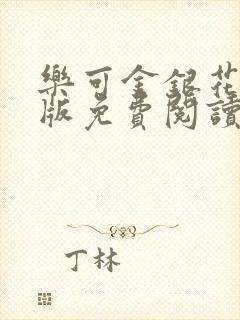 樂可金銀花
版免費閱讀
丁林